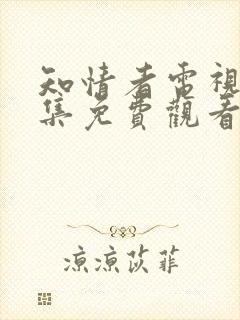 知情者電視
集免費觀看
凉凉苡菲